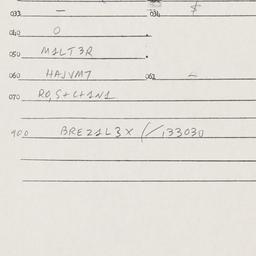 033 — 034 $
040 O
050 M1LT3R
060 HAJVM7 061 –
070 R0,S+C+1N1
900 BREZ1L3X (/,33030